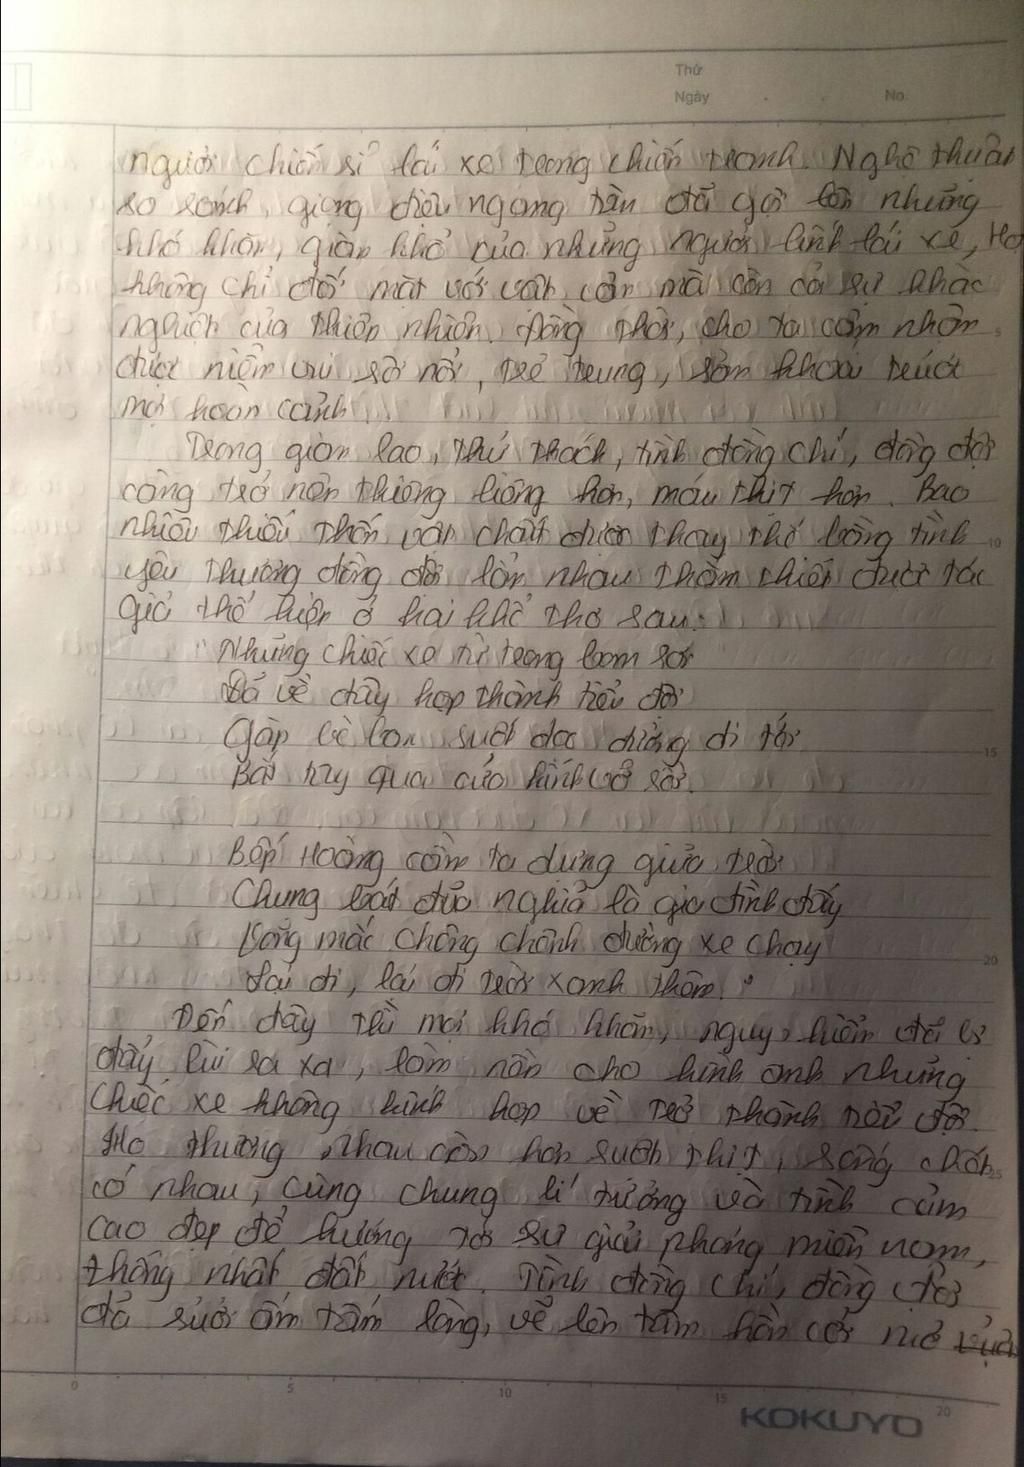 Thứ
Ngày No.
người chiến sĩ lái xe trong chiến tranh. Nghệ thuật
so sánh, giọng điệu ngang tàn đã gợi lên những
khó khăn, gian khổ của những người lính lái xe, Họ
không chỉ đối mặt với vật cản mà còn cả sự khắc
nghiệt của thiên nhiên. Đồng thời, cho ta cảm nhận
được niềm vui sôi nổi, trẻ trung, sảng khoái trước
mọi hoàn cảnh.
Trong gian lao, thử thách, tình đồng chí, đồng đội
càng trở nên thiêng liêng hơn, máu thịt hơn. Bao
nhiêu thiếu thốn vật chất được thay thế bằng tình
yêu thương đồng đội lẫn nhau thắm thiết được tác
giả thể hiện ở hai khổ thơ sau:
"Những chiếc xe từ trong bom rơi
Đã về đây họp thành tiểu đội
Gặp bè bạn suốt dọc đường đi tới
Bắt tay qua cửa kính vỡ rồi.
Bếp Hoàng cầm ta dựng giữa trời
Chung bát đũa nghĩa là gia đình đấy
Võng mắc chông chênh đường xe chạy
Lại đi, lại đi trời xanh thêm."
Đến đây thì mọi khó khăn, nguy hiểm đã bị
đẩy lùi ra xa, làm nền cho hình ảnh những
chiếc xe không kính họp về trở thành tiểu đội.
Họ thương nhau còn hơn ruột thịt, sống chết
có nhau, cùng chung lí tưởng và tình cảm
cao đẹp để hướng tới sự giải phóng miền nam,
thống nhất đất nước. Tình đồng chí, đồng đội
đã sưởi ấm tấm lòng, vẽ lên tâm hồn cởi mở
KOKUYO